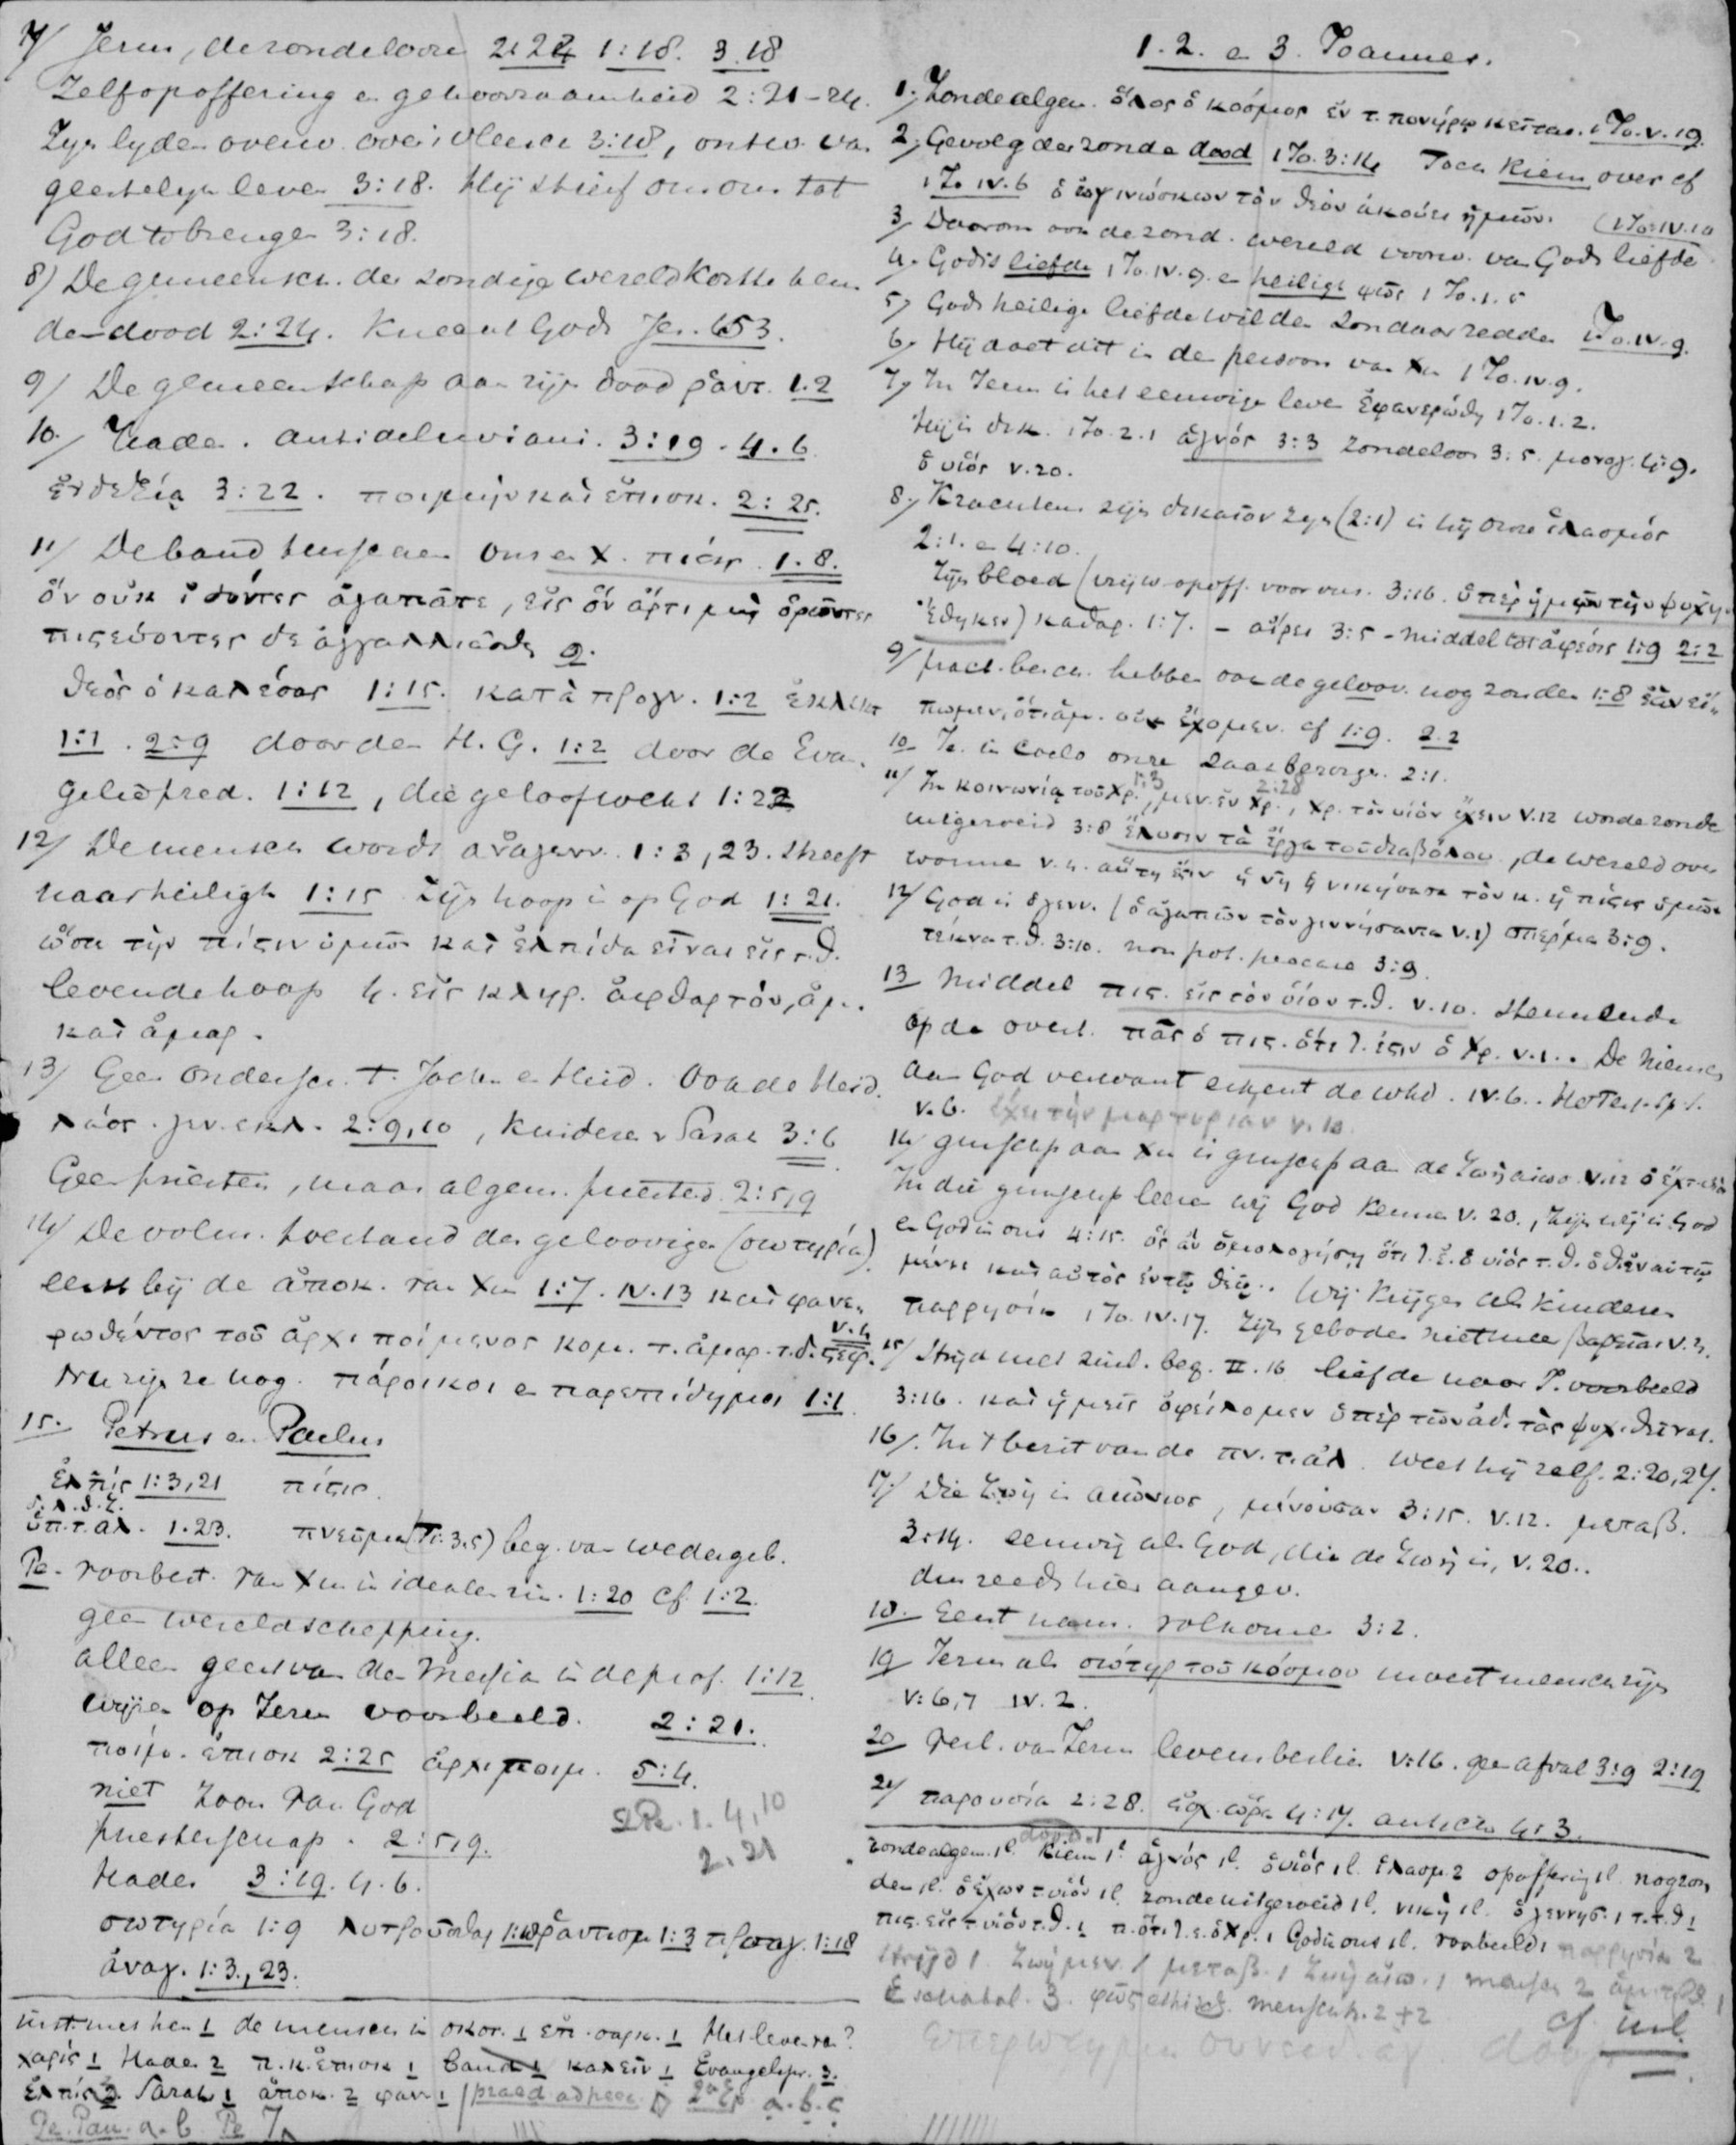 7/ Jezus, de zondelooze 2:22 1:18. 3.18
Zelfopoffering en gehoorzaamheid 2:21-24.
Zijn lyden overw. over 't vleesch 3:18, ontw. van
geestelyk leven 3:18. Hij stierf om ons tot
God te brengen 3:18.
8) De gemeensch. der zondige wereld kostte hem
den dood 2:24. Knecht Gods Jes. 53.
9/ De gemeenschap aan zijn dood ῥαντ. 1.2
10/ Hades. antidiluviani. 3:19. 4.6
ἐν δεξιᾷ 3:22. ποιμὴν καὶ ἐπισκ. 2:25.
11/ De band tusschen ons en X. πίστις 1.8.
ὃν οὐκ ἰδόντες ἀγαπᾶτε, εἰς ὃν ἄρτι μὴ ὁρῶντες
πιστεύοντες δὲ ἀγαλλιᾶσθε 2.
θεὸς ὁ καλέσας 1:15. κατὰ προγν. 1:2 ἐκλεκτ
1:1. 2:9 door den H. G. 1:2 door de Evan-
geliepred. 1:12, die geloof wekt 1:22
12/ De mensch wordt ἀναγενν. 1:3,23. streeft
naar heiligh 1:15 Zijn hoop is op God 1:21.
ὥστε τὴν πίστιν ὑμῶν καὶ ἐλπίδα εἶναι εἰς τ. θ.
levende hoop 4. εἰς κληρ. ἄφθαρτον, ἀμ.
καὶ ἀμαρ.
13/ Geen ondersch. t. Joden en Heid. Ook de Heid.
λάος. γεν. εκλ. 2:9,10, kinderen v Sarah 3:6
Geen priesters, maar algem. priestersch. 2:5,9
14/ De volm. toestand der geloovigen (σωτηρία)
eerst bij de ἀποκ. van Xus 1:7. IV.13 καὶ φανε-
ρωθέντος τοῦ ἀρχιποίμενος κομ. τ. ἀμαρ. τ. δ. στεφ. V.4
Nu zijn ze nog. πάροικοι en παρεπίδημοι 1:1
15. Petrus en Paulus
ἐλπίς 1:3,21 πίστις
δ. λ. θ. ζ.
ὑπ. τ. ἀλ. 1.23. πνεῦμα (Ti. 3.5) beg. van wedergeb.
Pe. voorbest. van Xus in idealen zin. 1:20 cf. 1:2.
geen wereldschepping.
alleen geest van den Messias in de prof. 1:12
wijzen op Jezus voorbeeld. 2:21.
ποίμ. ἐπισκ 2:25 ἀρχιποιμ. 5:4.
niet Zoon van God
priesterschap. 2:5,9.
2Pe. 1. 4,10
2,21
Hades 3:19. 4.6.
σωτηρία 1:9 λυτροῦσθαι 1:18 ῥαντισμ 1:3 προσαγ. 1:18
ἀναγ. 1:3,23.
de mensch in σκοτ. 1 ἐπ. σαρκ. 1 Het leven v.?
χαρίς 1 Hades 2 π. κ. ἐπισκ 1 band 1 καλεῖν 1 Evangeliepr. 2.
ἐλπίς 2 Sarah 1 ἀποκ. 2 φαν. 1 a. b. c
Pe. Pau. a. b. Pe 7.
1. 2. en 3. Joannes.
1. Zonde algem. ὅλος ὁ κόσμος ἐν τ. πονήρῳ κεῖται. 1 Jo. v. 19.
2/ Gevolg der zonde dood 1 Jo. 3:14 Toch kiem over cf
1 Jo IV.6 ὁ γινώσκων τὸν θεὸν ἀκούει ἡμῶν. (1 Jo: IV.10
3/ Daarom ook de zond. wereld voorw. van Gods liefde
4. God is liefde 1 Jo. IV. 9. en heilig φῶς 1 Jo. 1. 5
5/ Gods heilige liefde wil den zondaar redden 1 Jo. IV. 9.
6. Hij doet dit in den persoon van Xus 1 Jo. IV. 9.
7/ In Jezus is het eeuwige leven ἐφανερώθη 1 Jo. 1. 2.
Hij is δικ. 1 Jo. 2.1 ἁγνός 3:3 zondeloos 3:5. μονογ. 4:9.
ὁ υἱός V. 20.
8/ Krachtens zijn δικαιον zijn (2:1) is hij onze ἱλασμός
2:1. en 4:10.
Zijn bloed (vrijw opoff. voor ons. 3:16. ὑπὲρ ἡμῶν τὴν ψυχὴν
ἔθηκεν) καθαρ. 1:7. - αἴρει 3:5 - middel tot ἀφέσις 1:9 2:2
9/ hebben ook de geloov. nog zonden 1:8 ἐὰν εἴ-
πωμεν, ὅτι ἁμ. οὐκ ἔχομεν. cf 1:9. 2.2
10 Je. in coelo onze zaakbezorger. 2:1.
11/ In κοινωνίᾳ τοῦ Χρ. 1:3, μεν. ἐν Χρ. 2:28, Χρ. τὸν υἱόν ἔχειν V.12 worde zonde
uitgeroeid 3:8 ἔλυσεν τὰ ἔργα τοῦ διαβόλου, de wereld over
wonnen V.4. αὕτη ἐστιν ἡ νίκη ἡ νικήσασα τὸν κ. ἡ πίστις ὑμῶν
12/ God is ὁ γενν. (ὁ ἀγαπῶν τὸν γεννήσαντα V.1) σπέρμα 3:9.
τέκνα τ. θ. 3:10. non pot. peccare 3:9.
13 Middel πις. εἰς τὸν υἱον τ. θ. V.10. steunende
op de overt. πᾶς ὁ πις. ὅτι Ἰ. ἐστιν ὁ Χρ. V.1.. De mensch
aan God verwant erkent de whd. IV.6.. Het Test. Sp. S.
V.6. ἔχει τὴν μαρτυρίαν V.10.
14/ gmschp aan Xus is gmschp aan de ζωὴ αἰων. V.12 ὁ ἔχ. τ. υἱὸ
In die gmschp leeren wij God kennen V. 20., zijn wij in God
en God in ons 4:15. ὃς ἂν ὁμολογήσῃ ὅτι Ἰ. ἐ. ὁ υἱός τ. θ. ὁ θ. ἐν αὐτῷ
μένει καὶ αὐτὸς ἐν τῷ θεῷ.. Wij krijgen als kinderen
παρρησία 1 Jo. IV. 17. Zijn geboden niet meer βαρεῖαι V. 3.
15/ Strijd met zinl. beg. II. 16 liefde naar J. voorbeeld
3:16. καὶ ἡμεῖς ὀφείλομεν ὑπὲρ τῶν ἀδ. τὰς ψυχ. θεῖναι.
16/. In 't bezit van de πν. τ. ἀλ. weet hij zelf. 2:20,27.
17/ Die ζωή is αἰώνιος, μένουσαν 3:15. V.12. μεταβ.
3:14. eeuwig als God, die de ζωή is, V. 20..
dus reeds hier aangev.
18. Eerst nam. volkomen 3:2.
19 Jezus als σώτηρ τοῦ κόσμου moest mensch zijn
V:6,7 IV. 2.
20 Verl. van Jezus levensbeslis. V:16. geen afval 3:9 2:19
21/ παρουσία 2:28. ἐσχ. ὥρα 4:17. antichr. 4:3.
zonde algem. 1. kiem 1. ἁγνός 1. ὁ υἱός 1. ἱλασμ. 2 opoffering 1. nog zon
den 1. ὁ ἔχων τ υἱόν 1. zonde uitgeroeid 1. νικη 1. ὁ γεννησ. 1 τ. τ. θ 1
πις. εἰς τ υἱὸν τ. θ. 1 π. ὅτι Ἰ. ἐ. ὁ Χρ. 1 God in ons 1. voorbeeld 1 παρρησία 2
strijd 1. ζωὴ μεν. 1 μεταβ. 1 ζωὴ αἰω. 1 mensch 2
Eschatol. 3. φῶς ethisch. menschh. 2 + 2
cf